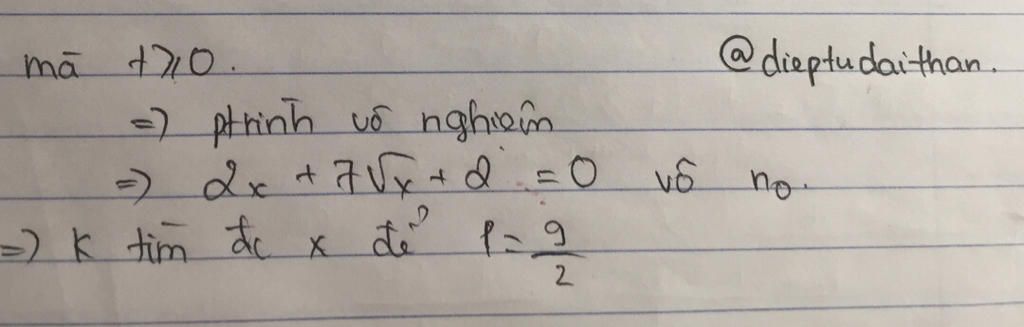 mà t ≥ 0. @dieptudaithan.
=> ptrình vô nghiệm
=> 2x + 7√x + 2 = 0 vô no.
=> K tìm đc x để P = 9/2